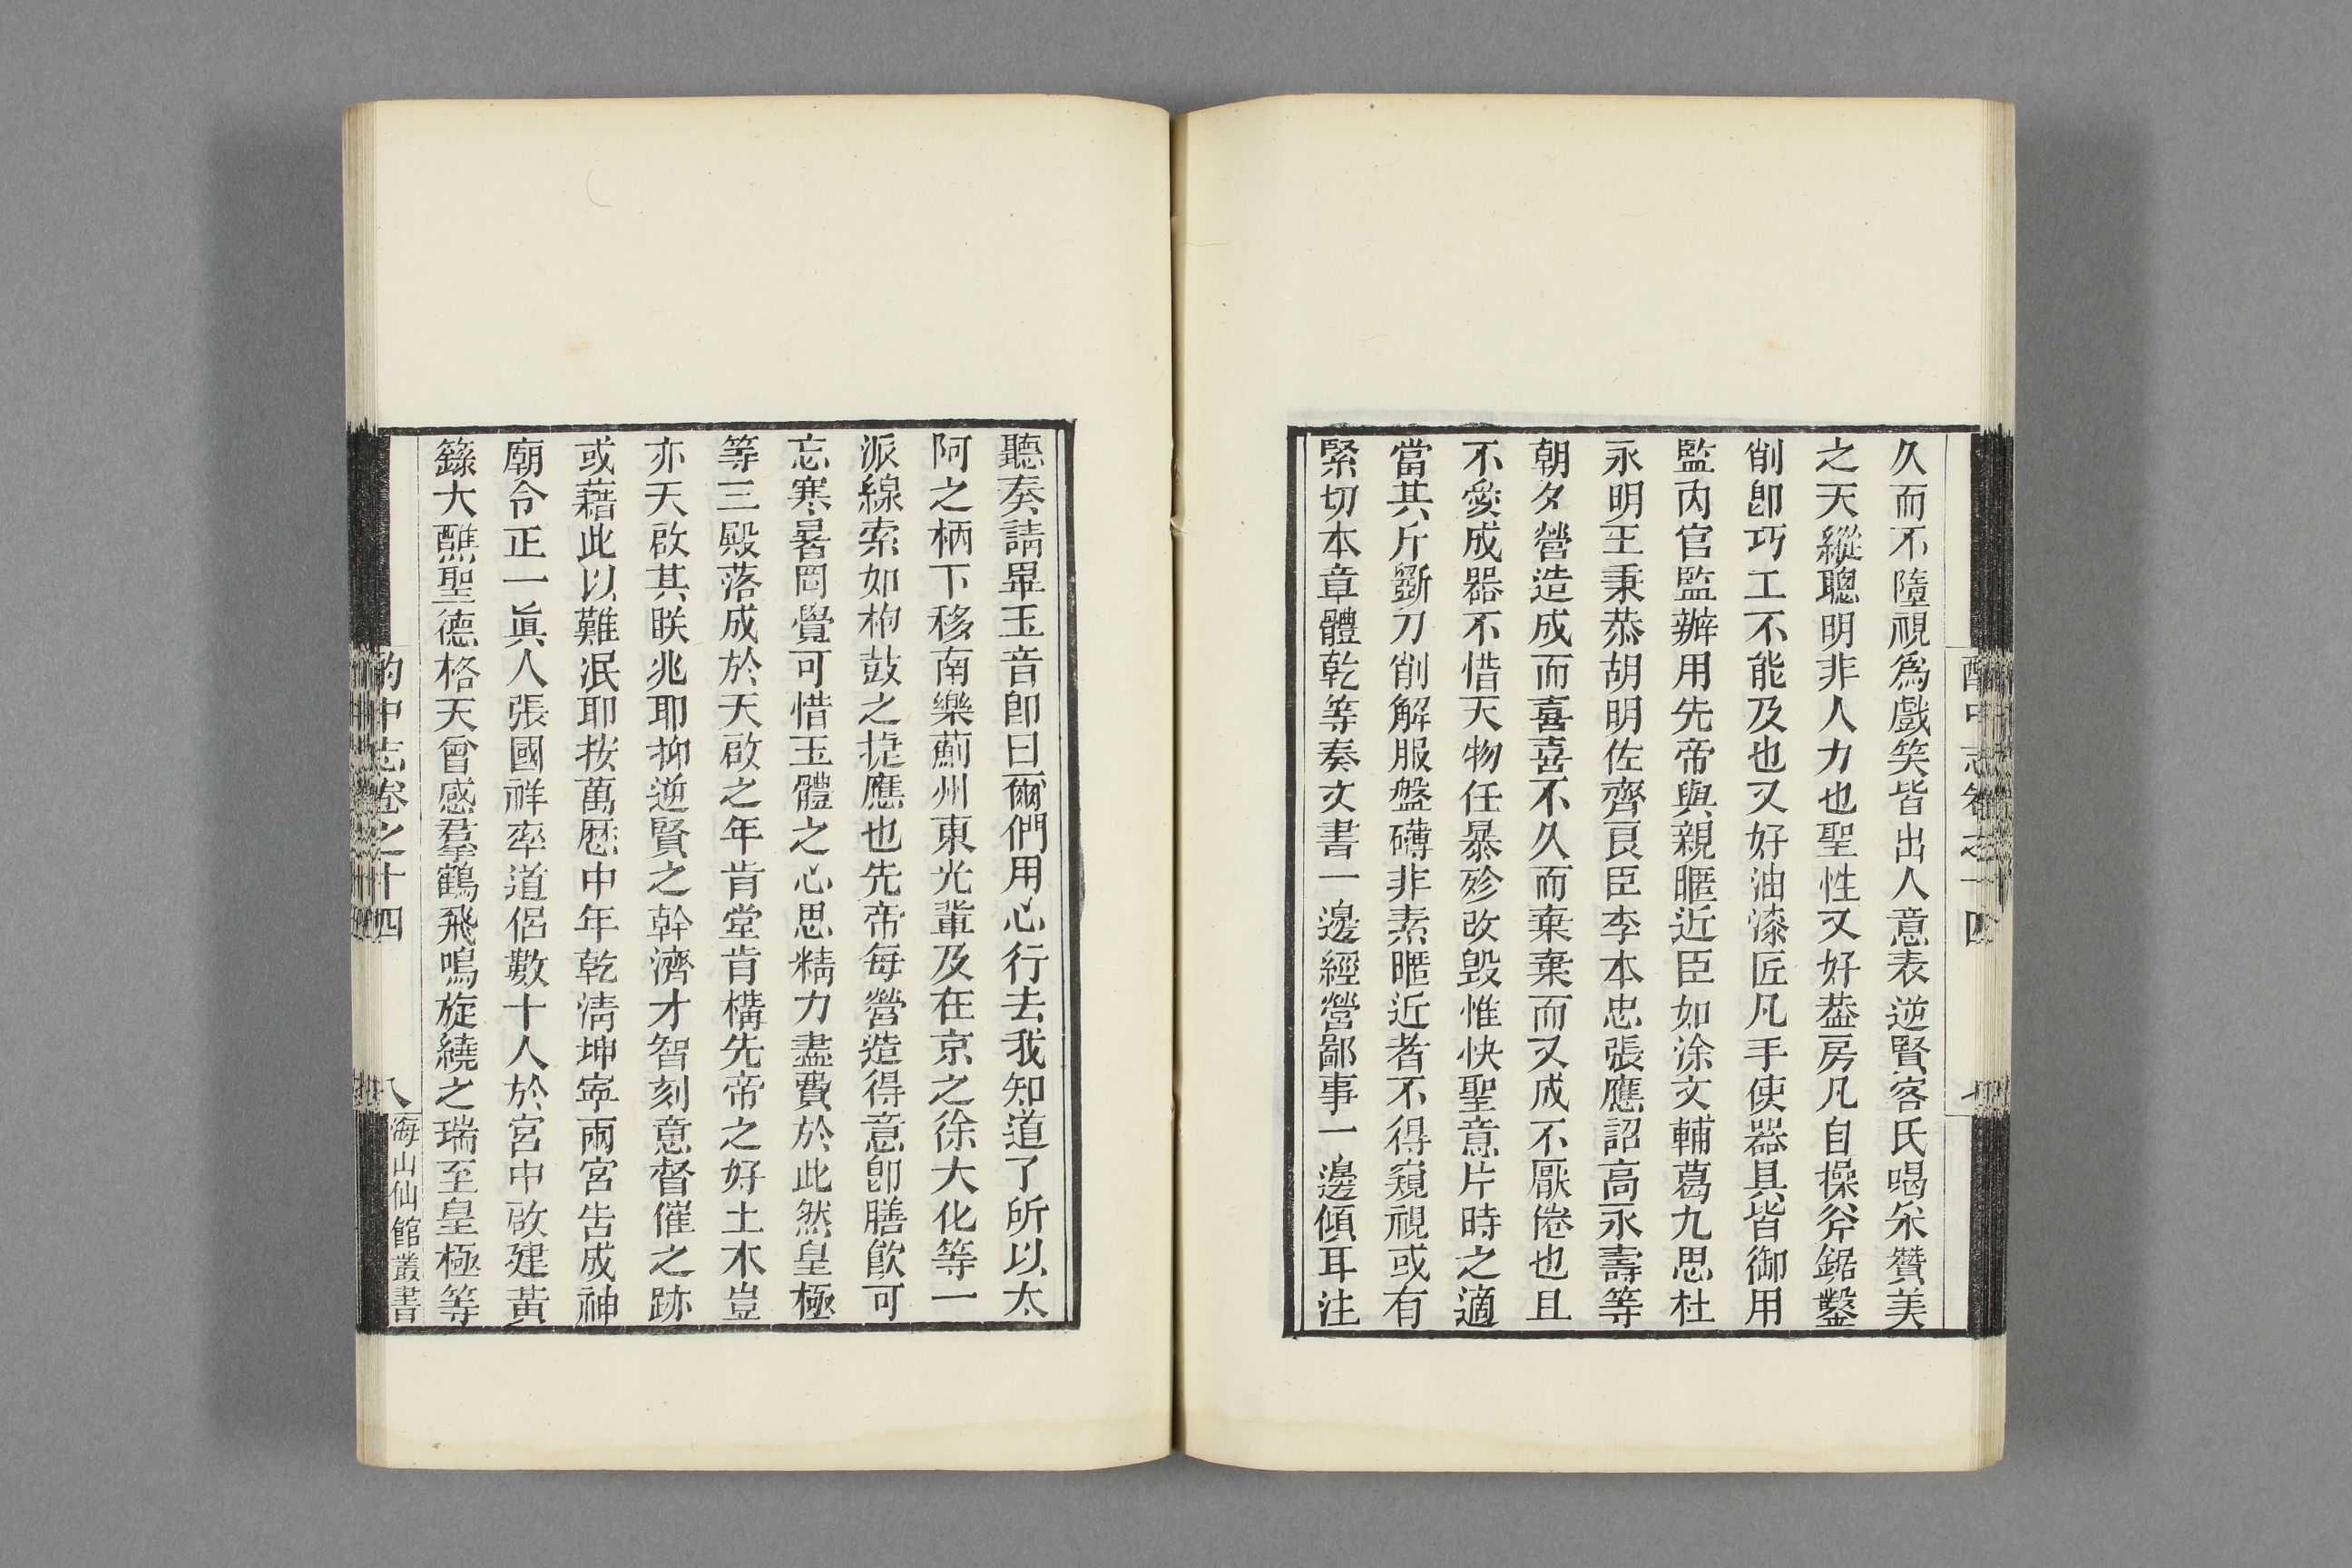 久而不隨視爲戲笑皆出人意表逆賢客氏喝采贊美
之天縱聰明非人力也聖性又好葢房凡自操斧鋸鑿
削卽巧工不能及也又好油漆匠凡手使器具皆御用
監內官監辦用先帝與親暱近臣如涂文輔葛九思杜
永明王秉恭胡明佐齊良臣李本忠張應詔高永壽等
朝夕營造成而喜喜不久而棄棄而又成不厭倦也且
不愛成器不惜天物任暴殄改毀惟快聖意片時之適
當其斤斵刀削解服盤礡非素暱近者不得窺視或有
緊切本章體乾等奏文書一邊經營鄙事一邊傾耳注
酌中志卷之十四
七
聽奏請畢玉音卽曰爾們用心行去我知道了所以太
阿之柄下移南樂薊州東光輩及在京之徐大化等一
派線索如枹鼓之捷應也先帝每營造得意卽膳飮可
忘寒暑罔覺可惜玉體之心思精力盡費於此然皇極
等三殿落成於天啟之年肯堂肯構先帝之好土木豈
亦天啟其眹兆耶抑逆賢之幹濟才智刻意督催之跡
或藉此以難泯耶按萬歷中年乾淸坤寧兩宮告成神
廟令正一眞人張國祥率道侶數十人於宮中啟建黃
籙大醮聖德格天曾感羣鶴飛鳴旋繞之瑞至皇極等
酌中志卷之十四
八
海山仙館叢書